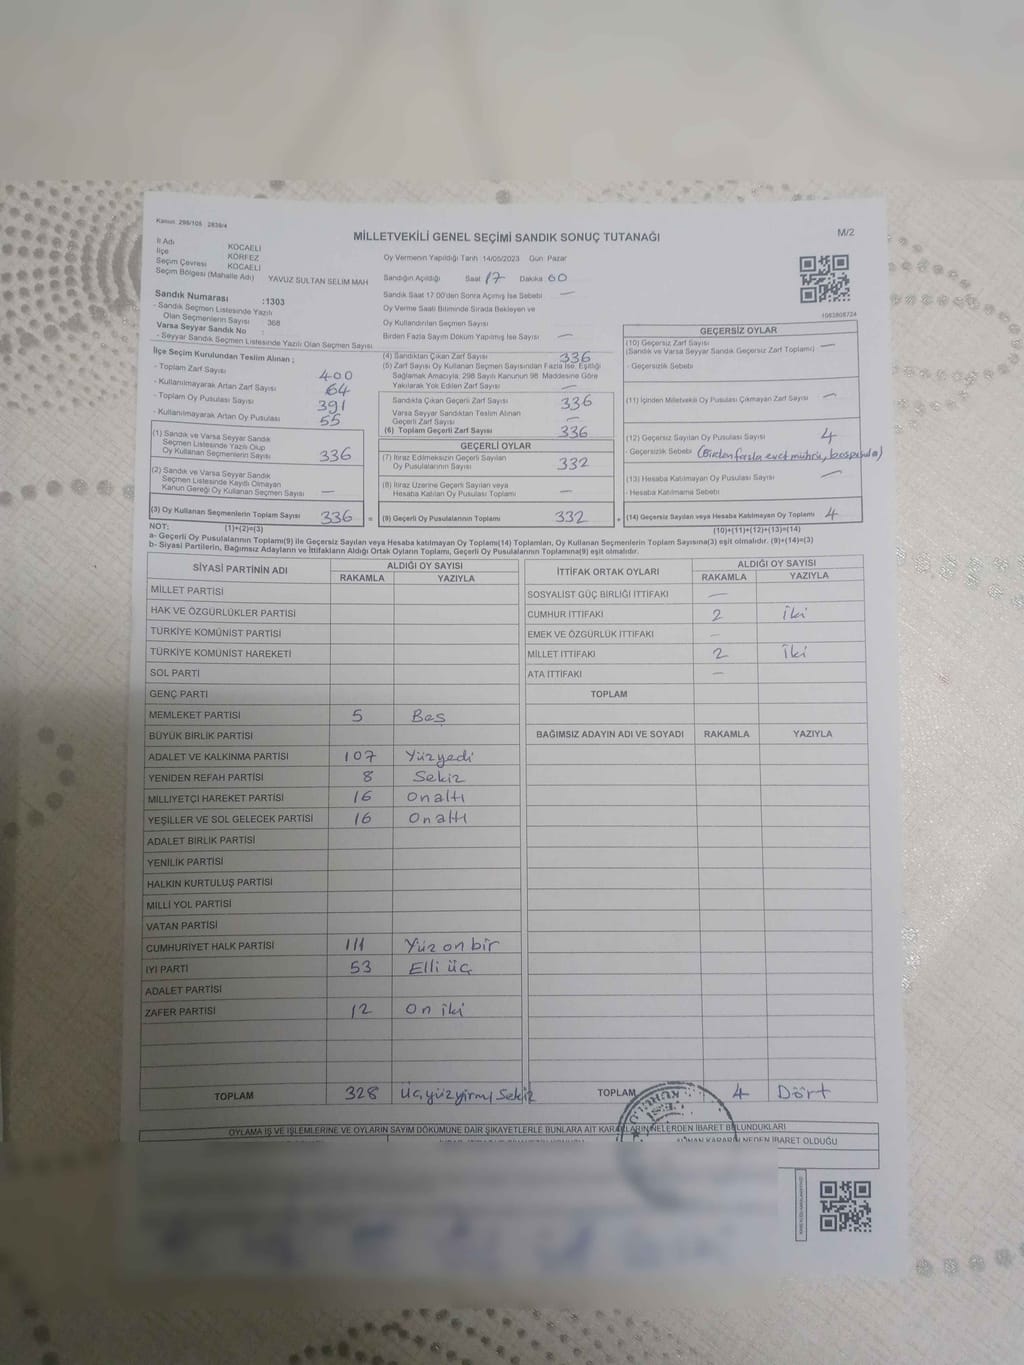 Kanun 298/105 2839/4
MİLLETVEKİLİ GENEL SEÇİMİ SANDIK SONUÇ TUTANAĞI
M/2
İl Adı KOCAELİ
İlçe KÖRFEZ
Seçim Çevresi KOCAELİ
Seçim Bölgesi (Mahalle Adı) YAVUZ SULTAN SELİM MAH
Sandık Numarası :1303
- Sandık Seçmen Listesinde Yazılı
Olan Seçmenlerin Sayısı : 368
Varsa Seyyar Sandık No :
- Seyyar Sandık Seçmen Listesinde Yazılı Olan Seçmen Sayısı
Oy Vermenin Yapıldığı Tarih 14/05/2023 Gün Pazar
Sandığın Açıldığı Saat 17 Dakika 60
Sandık Saat 17:00'den Sonra Açımış İse Sebebi —
Oy Verme Saati Bitiminde Sırada Bekleyen ve
Oy Kullandırılan Seçmen Sayısı
Birden Fazla Sayım Döküm Yapımış İse Sayısı —
1063808724
İlçe Seçim Kurulundan Teslim Alınan ;
- Toplam Zarf Sayısı 400
- Kullanılmayarak Artan Zarf Sayısı 64
- Toplam Oy Pusulası Sayısı 391
- Kullanılmayarak Artan Oy Pusulası 55
(1) Sandık ve Varsa Seyyar Sandık
Seçmen Listesinde Yazılı Olup
Oy Kullanan Seçmenlerin Sayısı 336
(2) Sandık ve Varsa Seyyar Sandık
Seçmen Listesinde Kayıtlı Olmayan
Kanun Gereği Oy Kullanan Seçmen Sayısı —
(3) Oy Kullanan Seçmenlerin Toplam Sayısı 336 =
(4) Sandıktan Çıkan Zarf Sayısı 336
(5) Zarf Sayısı Oy Kullanan Seçmen Sayısından Fazla İse, Eşitliği
Sağlamak Amacıyla; 298 Sayılı Kanunun 98. Maddesine Göre
Yakılarak Yok Edilen Zarf Sayısı —
Sandıkta Çıkan Geçerli Zarf Sayısı 336
Varsa Seyyar Sandıktan Teslim Alınan
Geçerli Zarf Sayısı —
(6) Toplam Geçerli Zarf Sayısı 336
GEÇERLİ OYLAR
(7) İtiraz Edilmeksizin Geçerli Sayılan
Oy Pusulalarının Sayısı 332
(8) İtiraz Üzerine Geçerli Sayılan veya
Hesaba Katılan Oy Pusulası Toplamı —
(9) Geçerli Oy Pusulalarının Toplamı 332 +
GEÇERSİZ OYLAR
(10) Geçersiz Zarf Sayısı
(Sandık ve Varsa Seyyar Sandık Geçersiz Zarf Toplamı) —
- Geçersizlik Sebebi
(11) İçinden Milletvekili Oy Pusulası Çıkmayan Zarf Sayısı —
(12) Geçersiz Sayılan Oy Pusulası Sayısı 4
- Geçersizlik Sebebi (Birden fazla evet mührü,
(13) Hesaba Katılmayan Oy Pusulası Sayısı —
- Hesaba Katılmama Sebebi
(14) Geçersiz Sayılan veya Hesaba Katılmayan Oy Toplamı 4
NOT: (1)+(2)=(3) (10)+(11)+(12)+(13)=(14)
a- Geçerli Oy Pusulalarının Toplamı(9) ile Geçersiz Sayılan veya Hesaba Katılmayan Oy Toplamı(14) Toplamları, Oy Kullanan Seçmenlerin Toplam Sayısına(3) eşit olmalıdır. (9)+(14)=(3)
b- Siyasi Partilerin, Bağımsız Adayların ve İttifakların Aldığı Ortak Oyların Toplamı, Geçerli Oy Pusulalarının Toplamına(9) eşit olmalıdır.
SİYASİ PARTİNİN ADI ALDIĞI OY SAYISI
RAKAMLA YAZIYLA
MİLLET PARTİSİ
HAK VE ÖZGÜRLÜKLER PARTİSİ
TÜRKİYE KOMÜNİST PARTİSİ
TÜRKİYE KOMÜNİST HAREKETİ
SOL PARTİ
GENÇ PARTİ
MEMLEKET PARTİSİ 5 Beş
BÜYÜK BİRLİK PARTİSİ
ADALET VE KALKINMA PARTİSİ 107 Yüzyedi
YENİDEN REFAH PARTİSİ 8 Sekiz
MİLLİYETÇİ HAREKET PARTİSİ 16 Onaltı
YEŞİLLER VE SOL GELECEK PARTİSİ 16 Onaltı
ADALET BİRLİK PARTİSİ
YENİLİK PARTİSİ
HALKIN KURTULUŞ PARTİSİ
MİLLİ YOL PARTİSİ
VATAN PARTİSİ
CUMHURİYET HALK PARTİSİ 111 Yüz on bir
İYİ PARTİ 53 Elli üç
ADALET PARTİSİ
ZAFER PARTİSİ 12 On iki
TOPLAM 328 Üçyüzyirmi Sekiz
İTTİFAK ORTAK OYLARI ALDIĞI OY SAYISI
RAKAMLA YAZIYLA
SOSYALİST GÜÇ BİRLİĞİ İTTİFAKI —
CUMHUR İTTİFAKI 2 İki
EMEK VE ÖZGÜRLÜK İTTİFAKI —
MİLLET İTTİFAKI 2 İki
ATA İTTİFAKI —
TOPLAM
BAĞIMSIZ ADAYIN ADI VE SOYADI RAKAMLA YAZIYLA
TOPLAM 4 Dört
OYLAMA İŞ VE İŞLEMLERİNE VE OYLARIN SAYIM DÖKÜMÜNE DAİR ŞİKAYETLERLE BUNLARA AİT KARARLARIN NELERDEN İBARET BULUNDUKLARI
NEDEN İBARET OLDUĞU